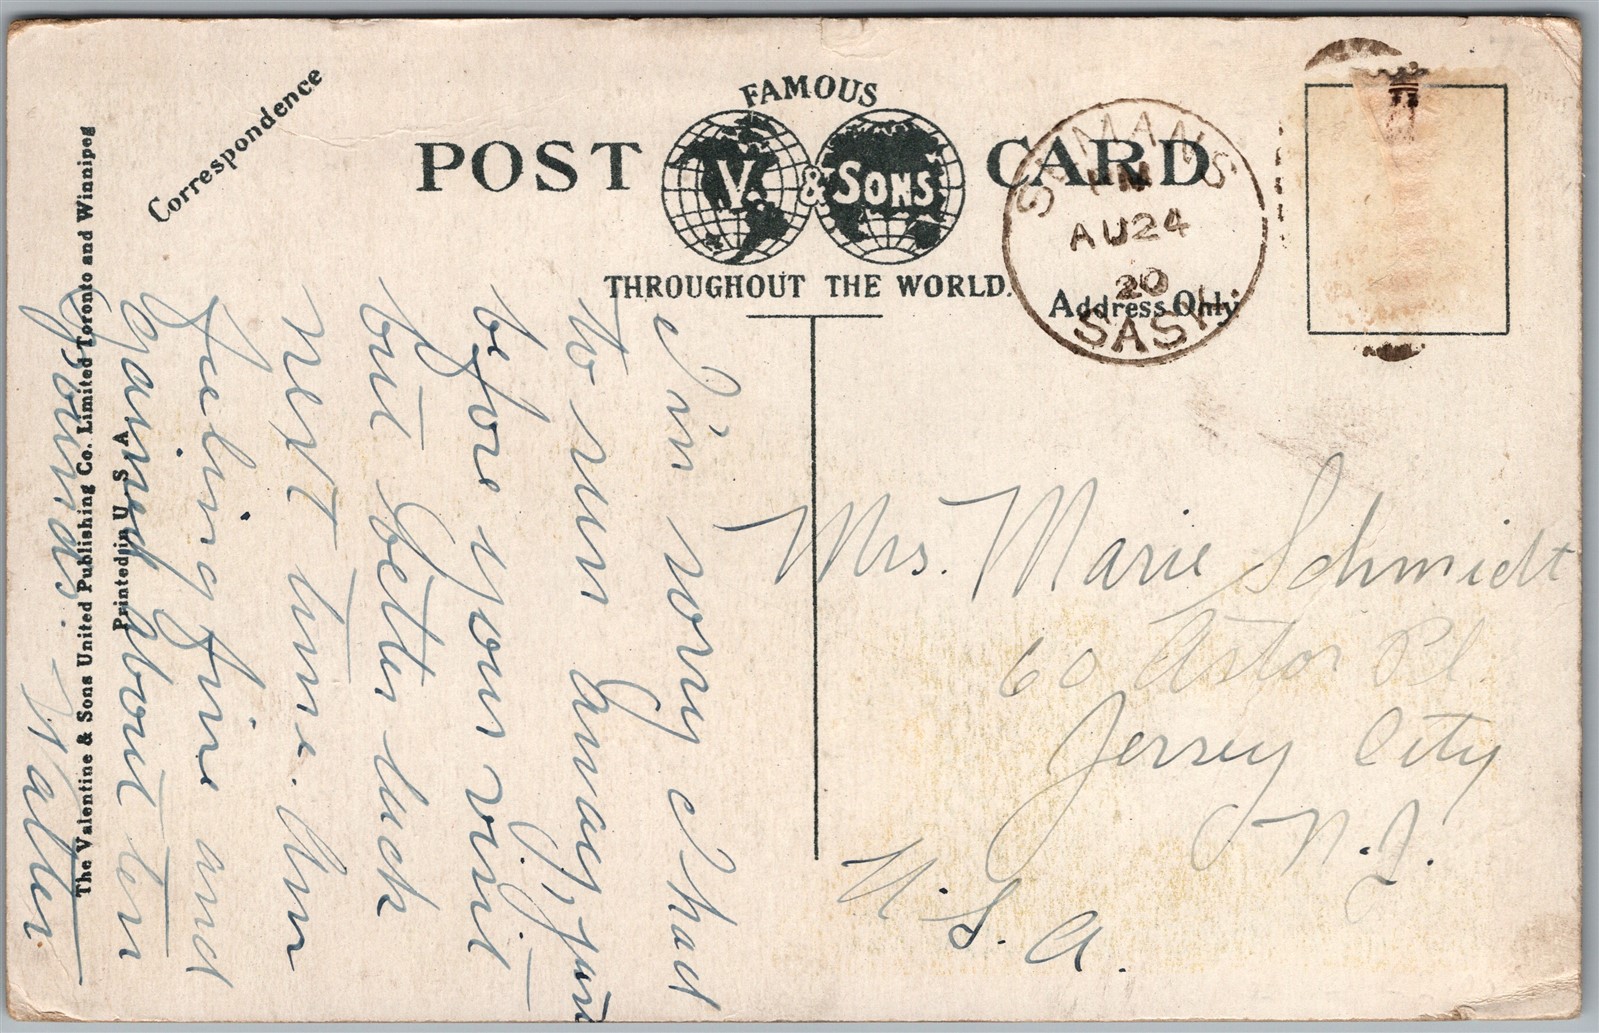 Correspondence
FAMOUS
POST V. & SONS CARD
THROUGHOUT THE WORLD.
Address Only
SEMANS
AU 24
20
SASK.
I'm sorry I had
to run away, just
before your visit
but better luck
next time. Am
feeling fine and
gained about ten
pounds.
Walter
Mrs. Marie Schmidt
60 Astor Pl.
Jersey City
N.J.
U.S.A.
The Valentine & Sons United Publishing Co. Limited Toronto and Winnipeg
Printed in U S A